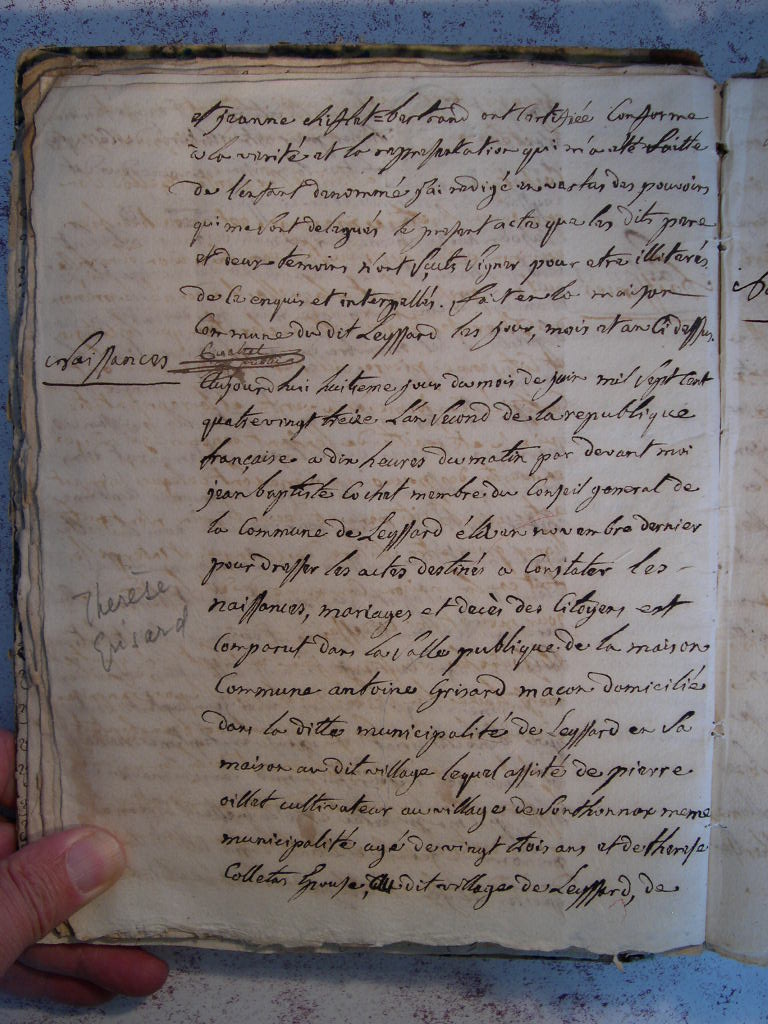 et jeanne Riflet=bertrand ont Certifiée Conforme
à la verité et la representation qui m'a eté faitte
de l'enfant denommé j'ai redigé en vertus des pouvoirs
qui me sont delegués le present acte que les dits pere
et deux temoins n'ont sçuts signer pour etre illiterés
de ce enquis et interpellés. fait en la maison
Commune du dit Leyssard les jour, mois et an Ci dessus.
Naissances
Aujourdhui huitieme jour du mois de juin mil sept cent
quatre vingt treize L'an second de la republique
française a dix heures du matin par devant moi
jean baptiste Cochet membre du Conseil general de
la Commune de Leyssard élu en novembre dernier
pour dresser les actes destinés a Constater les
naissances, mariages et decès des Citoyens est
Comparut dans la salle publique de la maison
Commune antoine Grisard maçon domicilié
dans la ditte municipalité de Leyssard en sa
maison au dit village lequel assisté de pierre
oillet cultivateur au village de Sonthonnax meme
municipalité agé de vingt trois ans et de therese
Colletas Epouse, du dit village de Leyssard, de
Therèse
Grisard